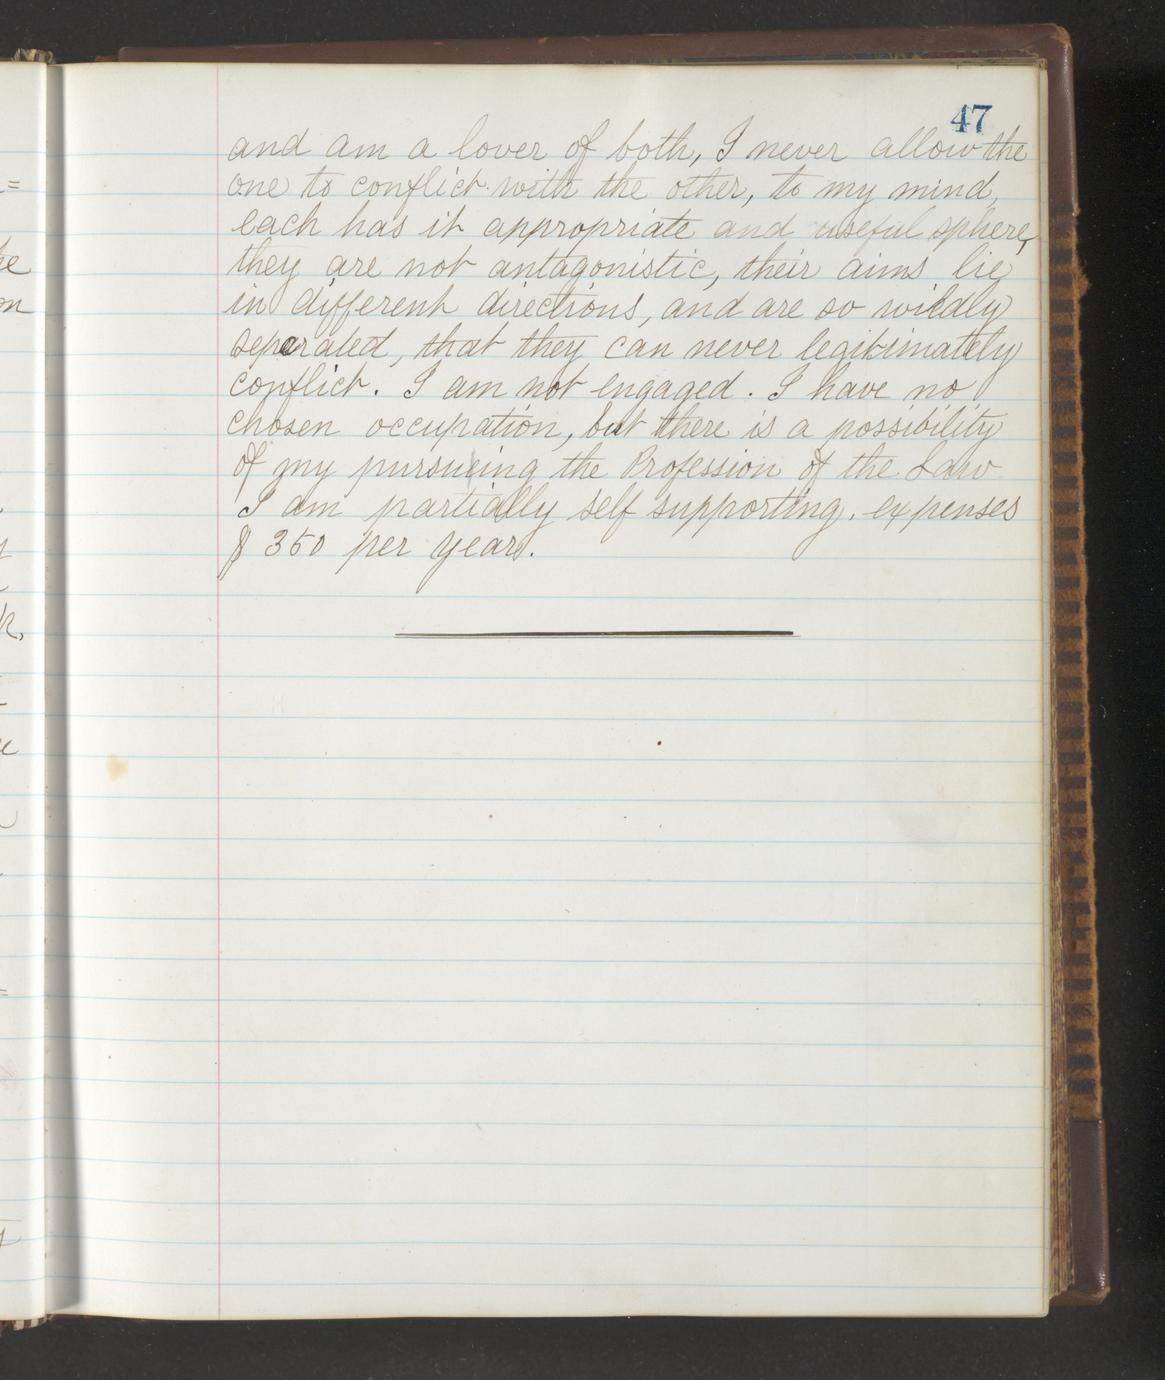 47
and am a lover of both, I never allow the
one to conflict with the other, to my mind,
each has it appropriate and useful sphere,
they are not antagonistic, their aims lie
in different directions, and are so wildly
seperated, that they can never legitimately
conflict. I am not engaged. I have no
chosen occupation, but there is a possibility
of my pursueing the Profession of the Law
I am partially self supporting. expenses
$350 per year.